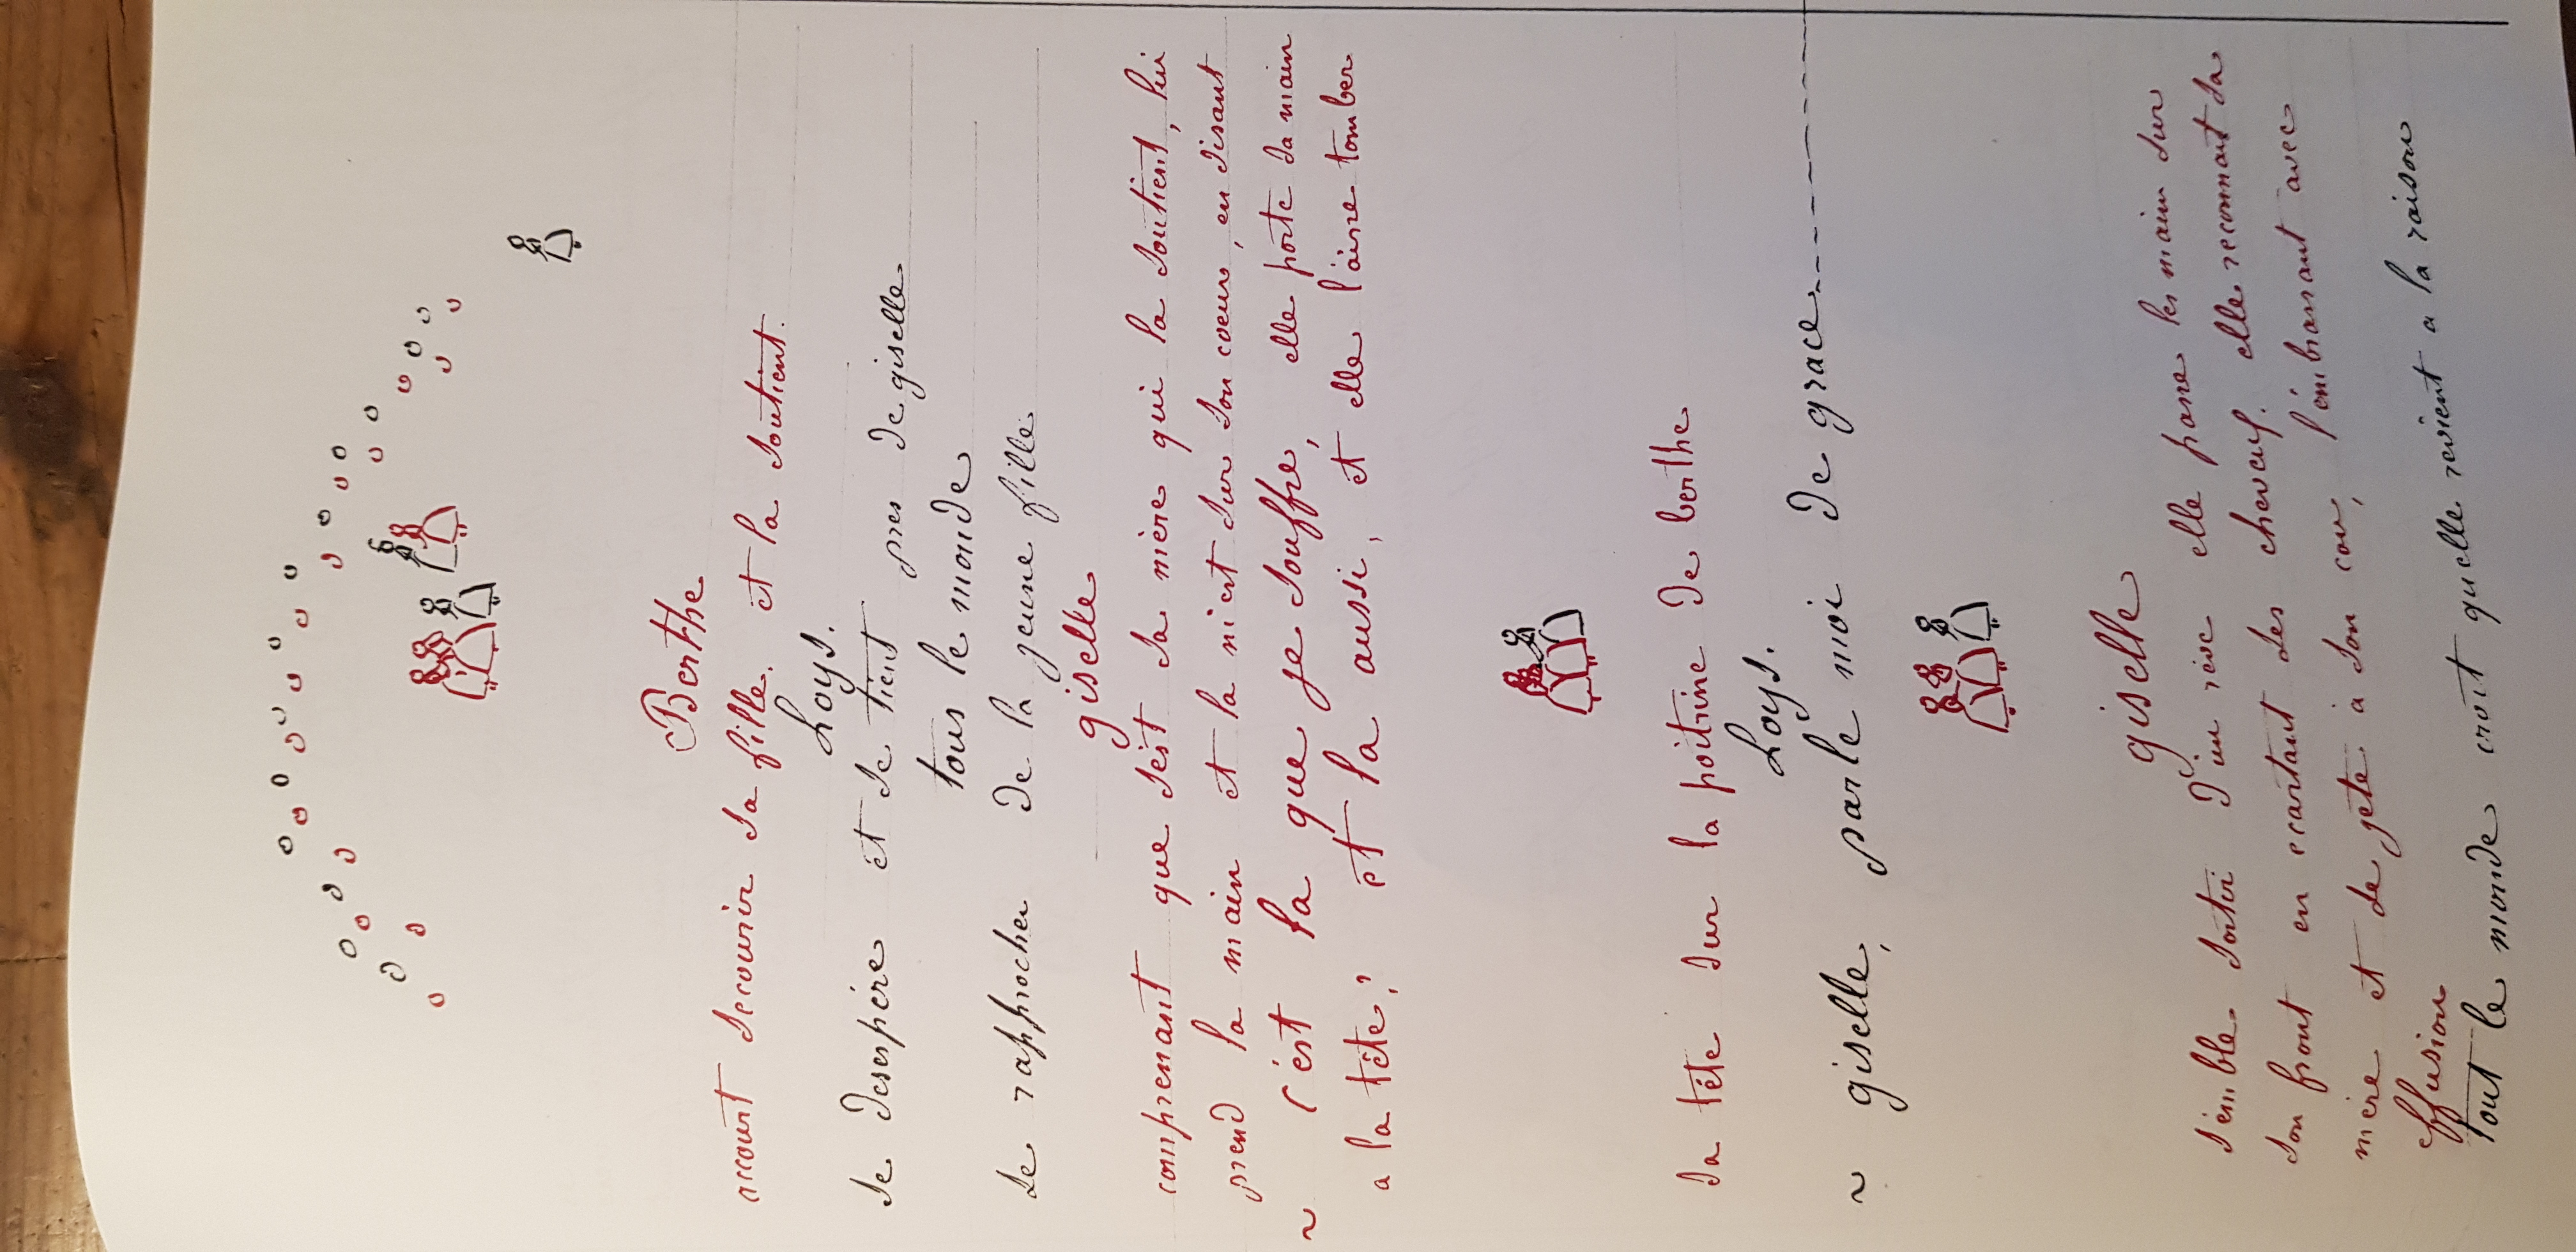 Berthe
accourt secourir sa fille. et la soutient.
Loys.
se desespére et se tient pres de giselle
tous le monde
se rapproche de la jeune fille
giselle
comprenant que s'est sa mère qui la soutient, lui
prend la main et la m'est sur son coeur, en disant
~ c'est la que je souffre, elle porte sa main
a la tête, et la aussi, et elle l'aisse tomber
sa tête sur la poitrine de berthe
Loys.
~ giselle, parle moi de grace
giselle
s'emble sortir d'un reve elle passe les main sur
son front en ecartant ses cheveux. elle reconnait sa
mère et se jete à son cou, l'embrassant avec
effusion
tout le monde croit quelle revient a la raison